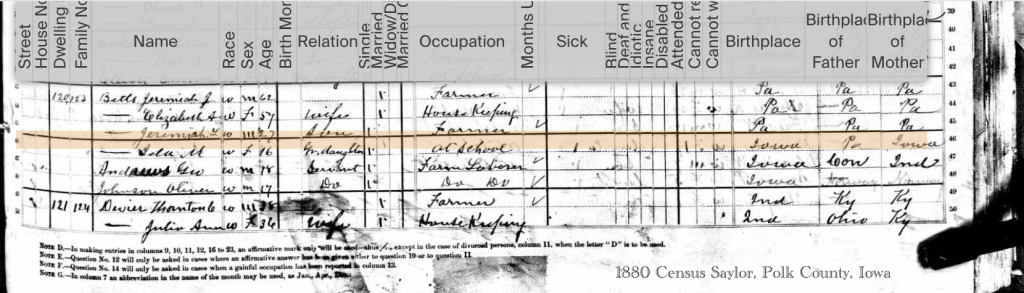 Street House No Dwelling Family No Name Race Sex Age Birth Mon Relation Single Married Widow/D Married Occupation Months U Sick Blind Deaf and Idiotic Insane Disabled Attended Cannot re Cannot w Birthplace Birthplac of Father Birthplac of Mother
39
40
41
42
43
120 123 Betts Jeremiah J w m 62 Farmer Pa Pa Pa 44
— Elizabeth A w F 57 Wife House Keeping Pa X Pa Pa 45
— Jeremiah L w m 27 Son Farmer Pa Pa Pa 46
— Ida M w F 16 Gndaughter At School Iowa Pa Iowa 47
Andrews Geo w m 18 Servant Farm Laborer Iowa Conn Ind 48
Johnson Oliver w m 17 Do Do Do Iowa 49
121 124 Devier Thornton w m Farmer Ind Ky Ky 50
— Julia Ann w F 36 Wife House Keeping Ind Ohio Ky
NOTE D.—In making entries in columns 9, 10, 11, 12, 16 to 23, an affirmative mark only will be used—thus /, except in the case of divorced persons, column 11, when the letter "D" is to be used.
NOTE E.—Question No. 12 will only be asked in cases where an affirmative answer has been given either to question 10 or to question 11.
NOTE F.—Question No. 14 will only be asked in cases when a gainful occupation has been reported in column 13.
NOTE G.—In column 7 an abbreviation in the name of the month may be used, as Jan., Apr., Dec.
1880 Census Saylor, Polk County, Iowa